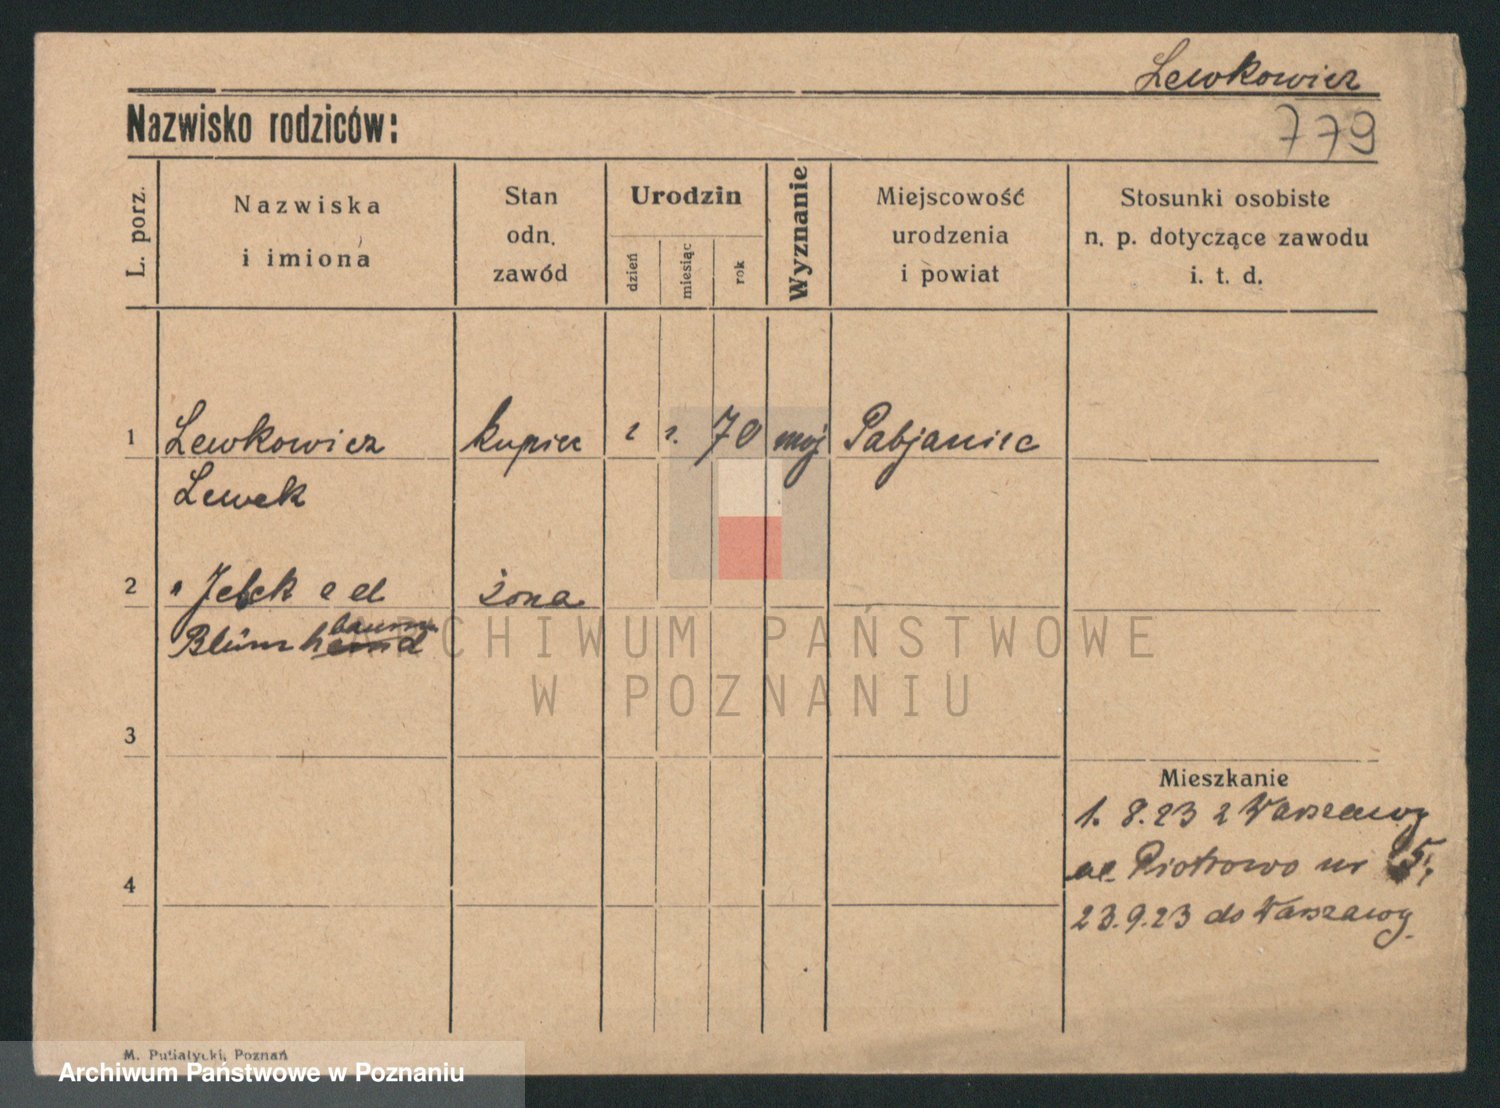 Lewkowicz
Nazwisko rodziców:
779
L. porz.
Nazwiska
i imiona
Stan
odn.
zawód
Urodzin
dzień
miesiąc
rok
Wyznanie
Miejscowość
urodzenia
i powiat
Stosunki osobiste
n. p. dotyczące zawodu
i. t. d.
1
Lewkowicz
kupiec
70
moj
Pabjanice
Lewek
2
" żona
Blüm baum
ARCHIWUM PAŃSTWOWE
W POZNANIU
3
Mieszkanie
1. 8.23 z Warszawy
Piotrowo nr 5,
4
23.9.23 do Warszawy
M. Putiatycki, Poznań
Archiwum Państwowe w Poznaniu